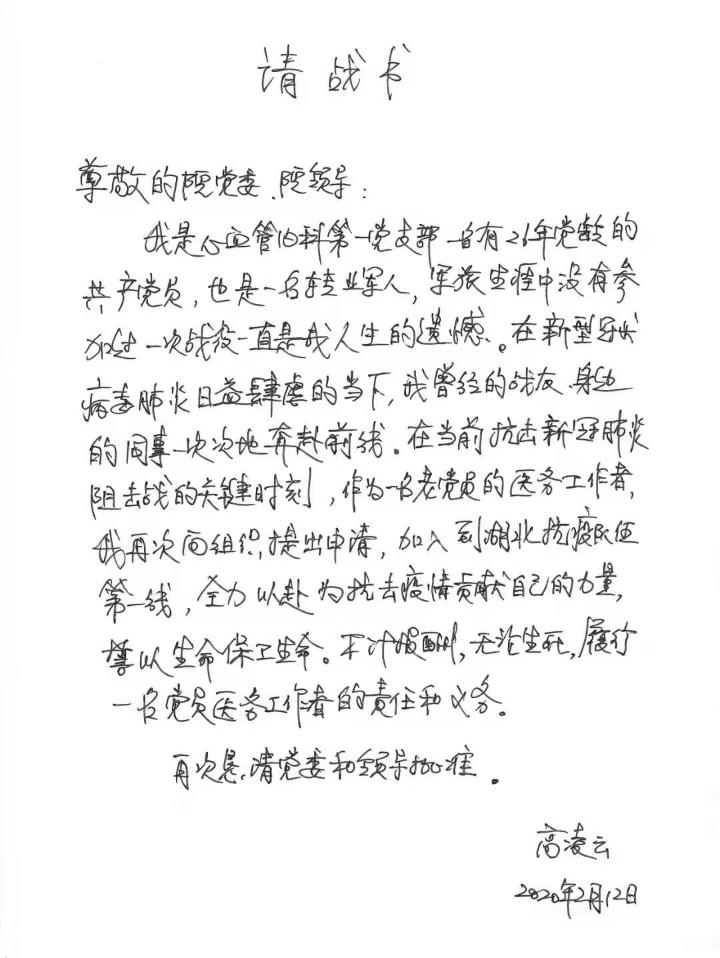 请战书
尊敬的院党委、院领导：
我是心血管内科第一党支部一名有26年党龄的
共产党员，也是一名转业军人，军旅生涯中没有参
加过一次战役一直是我人生的遗憾。在新型冠状
病毒肺炎日益肆虐的当下，我曾经的战友、身边
的同事一次次地奔赴前线。在当前抗击新冠肺炎
阻击战的关键时刻，作为一名老党员的医务工作者，
我再次向组织提出申请，加入到湖北抗疫队伍
第一线，全力以赴为抗击疫情贡献自己的力量，
誓以生命保卫生命。不计报酬，无论生死，履行
一名党员医务工作者的责任和义务。
再次恳请党委和领导批准。
高凌云
2020年2月12日